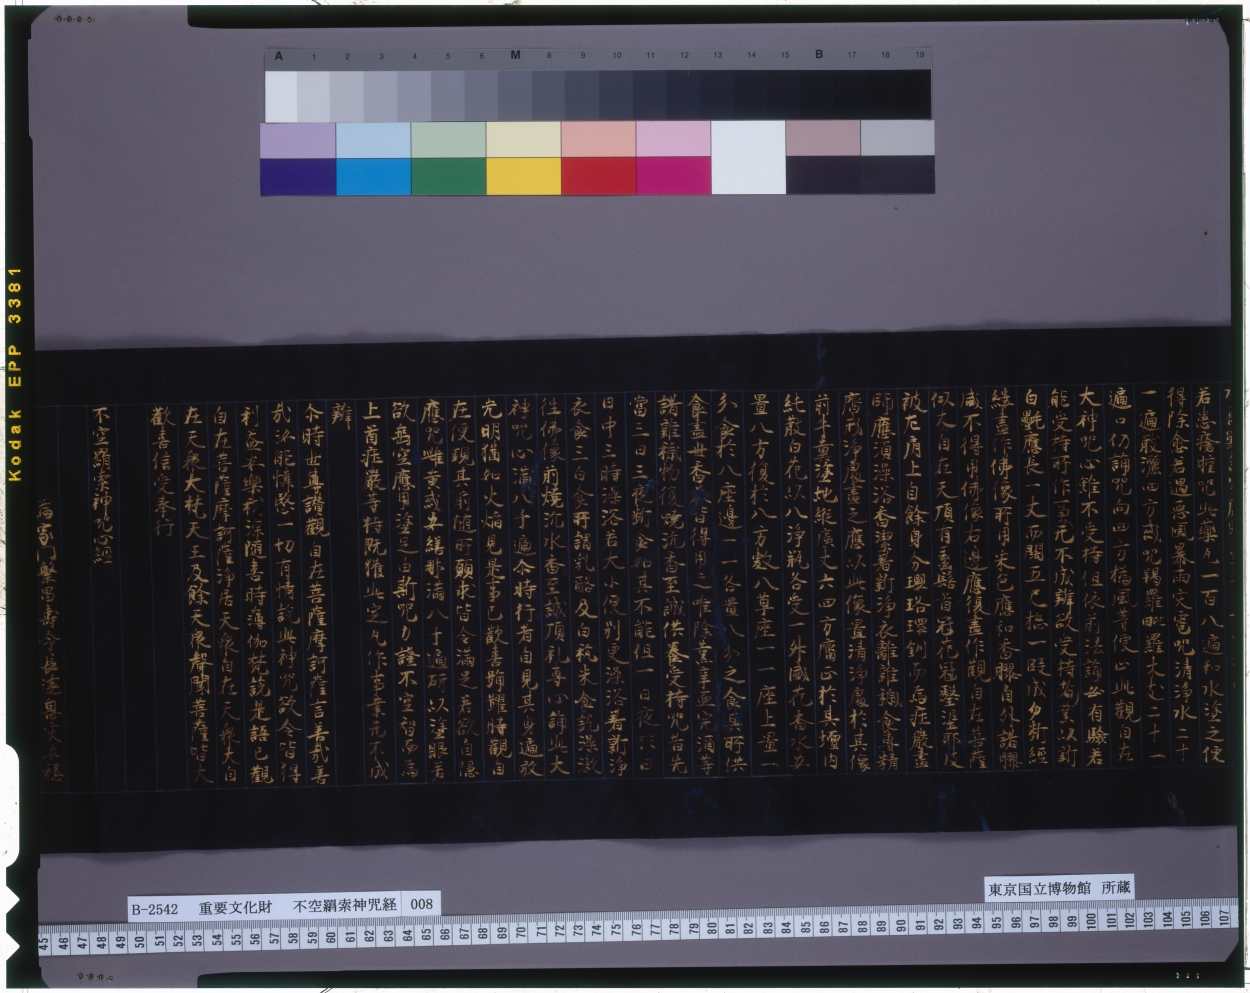 A 1 2 3 4 5 6 M 8 9 10 11 12 13 14 15 B 17 18 19
Kodak EPP 3381
若患瘧腥呪此藥丸一百八遍和水塗之便
得除愈若遇惡風暴雨災雹呪清淨水二十
一遍散灑四方或呪羯羅毗羅大杖二十一
遍口仍誦呪向四方撝風等便止此觀自在
大神呪心雖不受持但依前法誦必有驗若
能受持所作皆無不成辦欲受持者業以新
白㲲應長一丈而闊五尺
繪畫作佛像所用采色應和香膠自外諸膠
咸不得用佛像右邊應復畫作觀自在菩薩
似大自在天頂有螺髻首冠花冠
被左肩上自餘身分瓔珞環釧而為莊嚴畫
師應須澡浴香潔著新淨衣離雜穢食專精
齋形淨嚴畫之應以此像置清淨處於其像
前牛糞塗地縱廣丈六四方屬正於其壇內
純散白花以八淨瓶各受一升盛花香水安
置八方復於八方敷八草座一一座上置一
分食於八座邊一一各置八分之食其所供
食盡世香美皆得用之唯除葷辛血肉酒等
諸雜穢物復燒沉香至誠供養受持呪者先
當三日日三時斷食如其不能但一日夜於日
日中三時澡浴若大小便別更澡浴著新淨
衣食三白食所謂乳酪及白粳米食訖澡漱
往佛像前燒沉水香至誠頂礼專心誦此大
神呪心滿八千遍令時行者自見其身遍放
光明猶如火焰見是事已歡喜踴躍時觀自
在便現其前隨所願求皆令滿足若欲自隱
應呪雌黃或安繕那滿八千遍研以塗眼若
欲騰空應用塗足由斯呪力證不空智而為
上首莊嚴等持既獲此定凡作事業無不成
辦
尒時世尊讚觀自在菩薩摩訶薩言善哉善
哉汝能憐愍一切有情說此神呪欲令皆得
利益安樂我深隨喜時薄伽梵說是語已觀
自在菩薩摩訶薩淨居天衆自在天衆大自
在天衆大梵天王及餘天衆聲聞菩薩皆大
歡喜信受奉行
不空羂索神呪心經
B-2542 重要文化財 不空羂索神咒経 008
東京国立博物館 所蔵
45 46 47 48 49 50 51 52 53 54 55 56 57 58 59 60 61 62 63 64 65 66 67 68 69 70 71 72 73 74 75 76 77 78 79 80 81 82 83 84 85 86 87 88 89 90 91 92 93 94 95 96 97 98 99 100 101 102 103 104 105 106 107